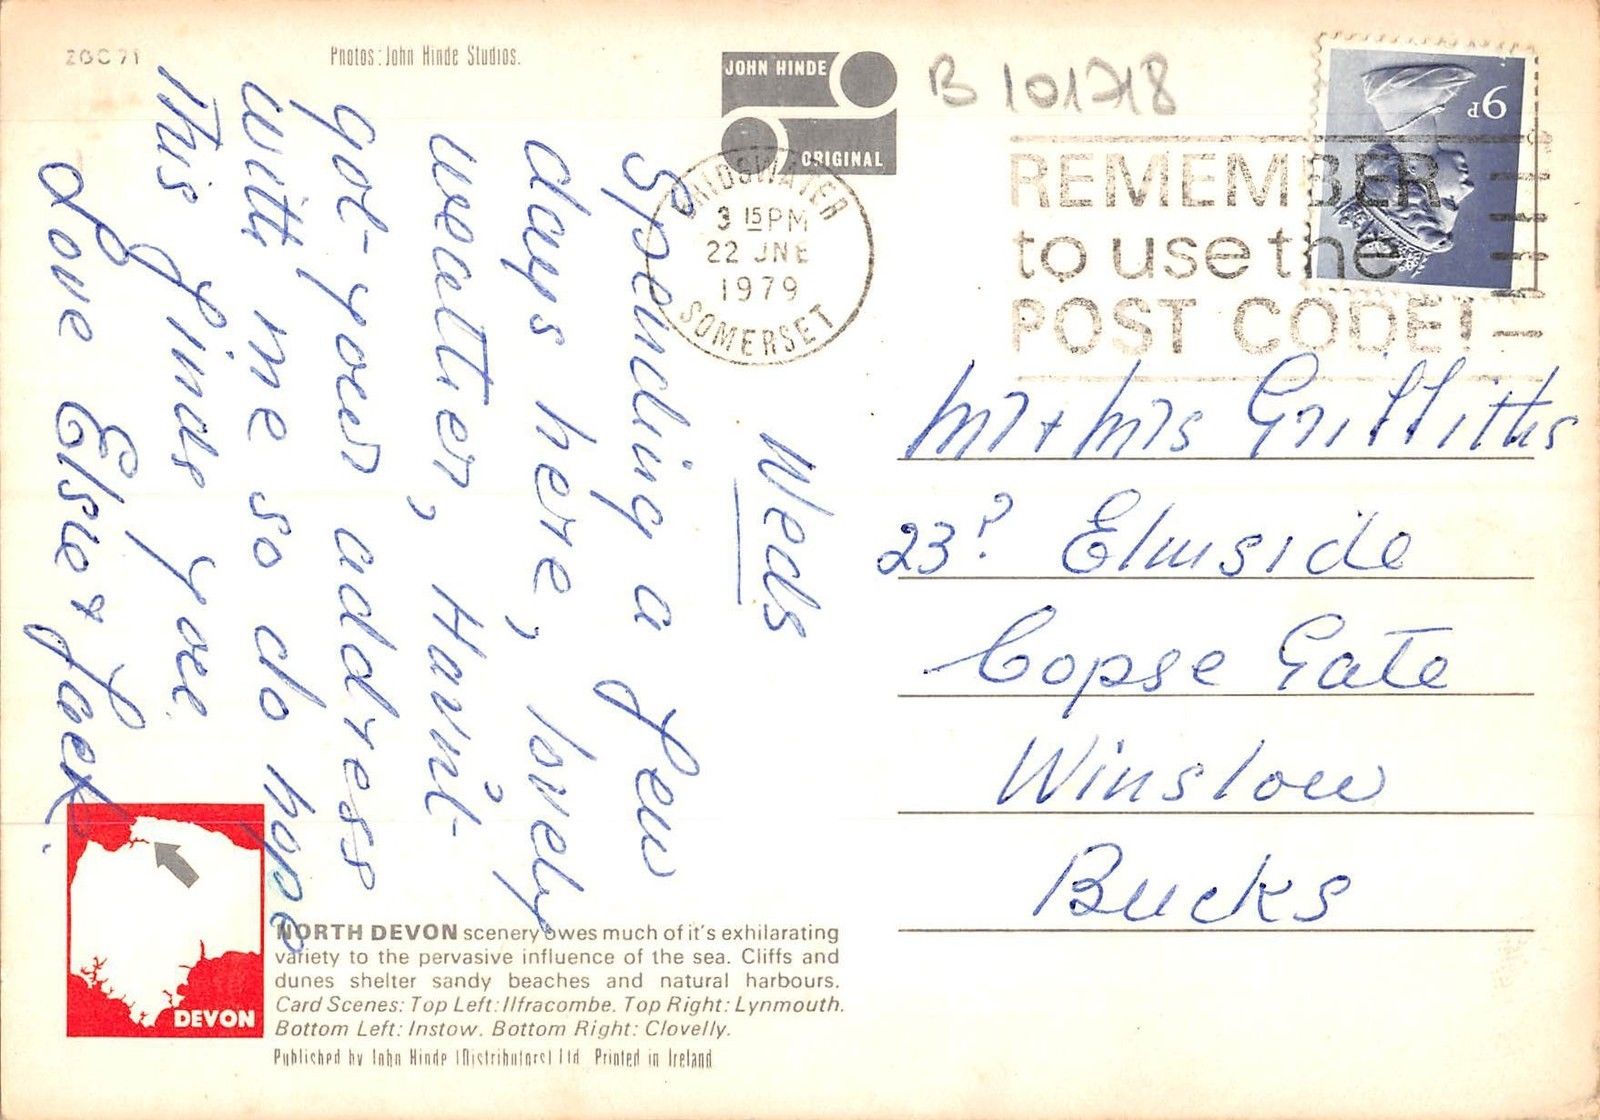 2DC 71
Photos: John Hinde Studios.
JOHN HINDE
ORIGINAL
B 101718
9P
BRIDGWATER
3 15 PM
22 JNE
1979
SOMERSET
REMEMBER
to use the
POST CODE!
Weds
Spending a few
days here, lovely
weather, Havnt-
got-your address
with me so do hope
this finds you.
Love Elsie & Jack.
Mr + Mrs Griffiths
23? Elmside
Copse Gate
Winslow
Bucks
DEVON
NORTH DEVON scenery owes much of it's exhilarating
variety to the pervasive influence of the sea. Cliffs and
dunes shelter sandy beaches and natural harbours.
Card Scenes: Top Left: Ilfracombe. Top Right: Lynmouth.
Bottom Left: Instow. Bottom Right: Clovelly.
Published by John Hinde (Distributors) Ltd. Printed in Ireland